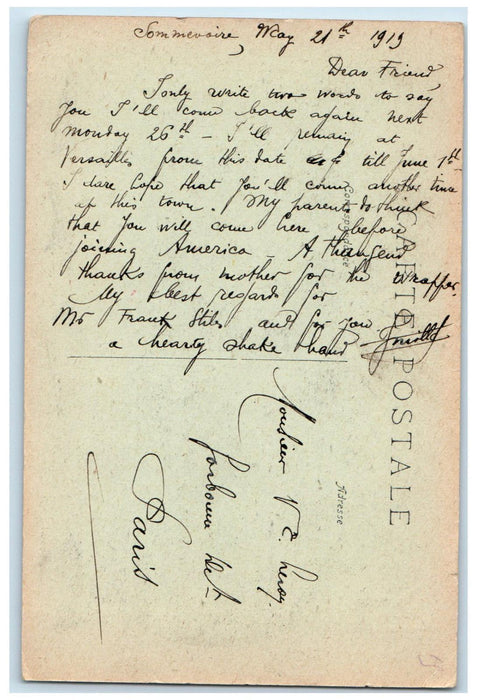 Sommevoire, May 21th 1919
Dear Friend,
I only write two words to say
you I'll come back again next
monday 26th - I'll remain at
Versailles from this date till June 1st
I dare hope that you'll come another time
at this town. My parents think
that you will come here before
joining America. A thousend
thanks from mother for the wrapper.
My best regards for
Mr Frank Stiles and for you
a hearty shake hand
CARTE POSTALE
Correspondance
Adresse
Monsieur V. E. Leroy
Sorbonne Det
Paris